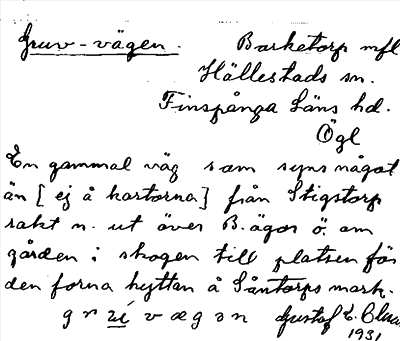 Gruv-vägen. Barketorp mfl
Hällestads sn.
Finspånga Läns hd.
Ögl
En gammal väg som syns något
än [ej å kartorna] från Stigstorp
rakt n. ut över B. ägor ö. om
gården i skogen till platsen för
den forna hyttan å Såntorps mark.
Gustaf E.
1931